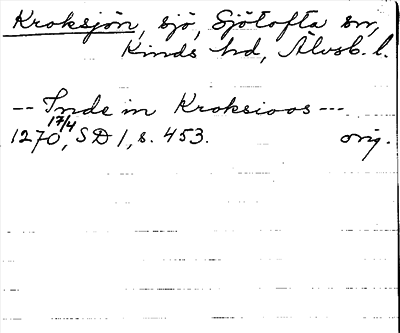 Kroksjön, sjö, Sjötofta sn,
Kinds hd, Älvsb. l.
-- Inde in Kroksioos ---
1270 17/4, SD 1, s. 453. orig.